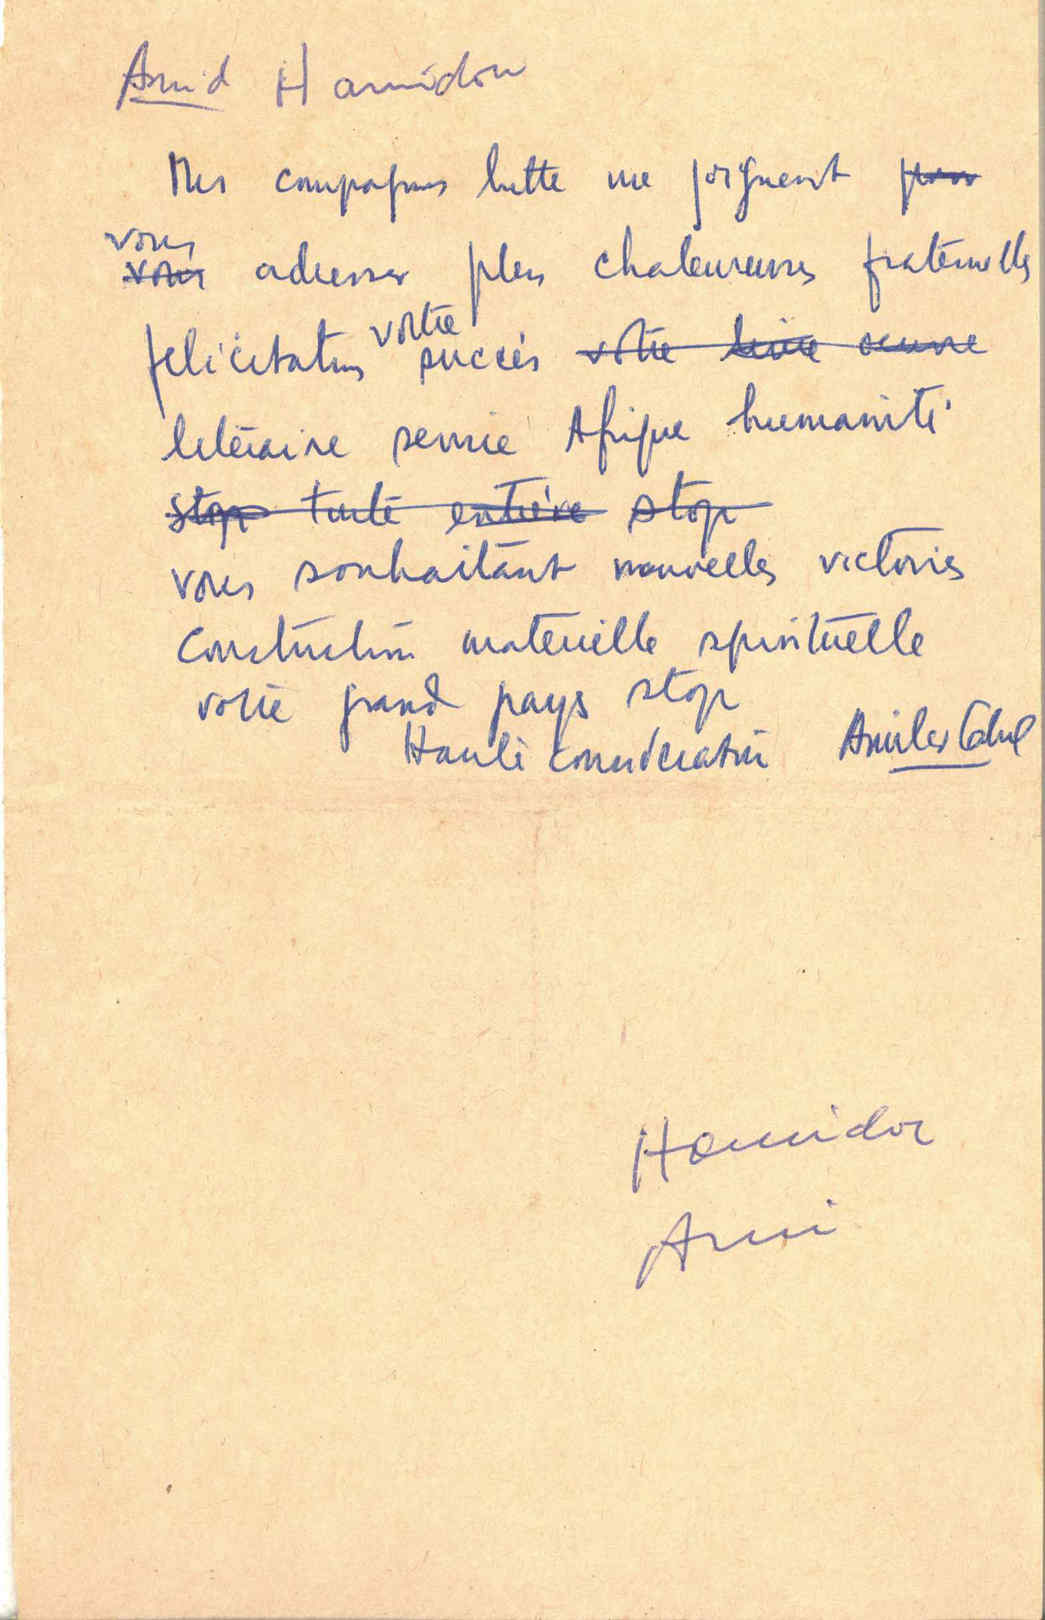 Amid Hamidou
Mes compagnons lutte me joignent pour
vous
vous adresser plus chaleureuses fraternelles
votre
felicitations succès votre livre oeuvre
literaire service Afrique humanité
stop toute entière stop
vous souhaitant nouvelles victoires
construction materielle spirituelle
votre grand pays stop
Haute considération Amilcar Cabral
Hamidou